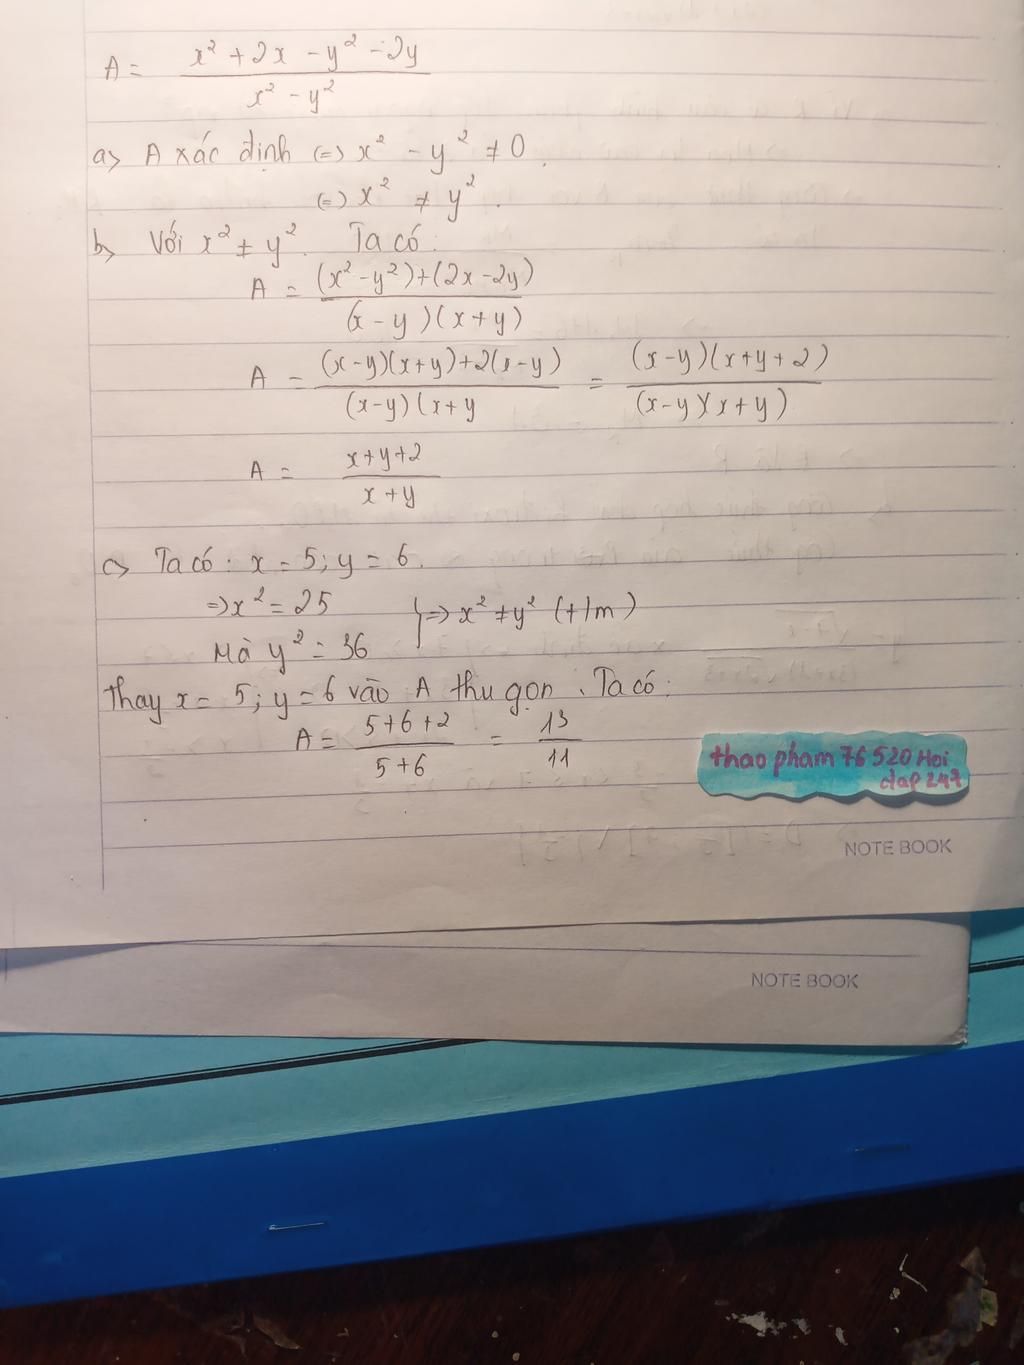 A = (x² + 2x - y² - 2y) / (x² - y²)
a> A xác định (=) x² - y² ≠ 0.
(=) x² ≠ y².
b> Với x² ≠ y². Ta có:
A = ((x² - y²) + (2x - 2y)) / ((x - y)(x + y))
A = ((x-y)(x+y)+2(x-y)) / ((x-y)(x+y = ((x-y)(x+y+2)) / ((x-y)(x+y))
A = (x+y+2) / (x+y)
c> Ta có: x = 5; y = 6.
=> x² = 25
Mà y² = 36 } => x² ≠ y² (t/m)
Thay x = 5; y = 6 vào A thu gọn. Ta có:
A = (5+6+2) / (5+6) = 13/11
thao pham 76 520 Hoi
dap 247
NOTE BOOK
NOTE BOOK